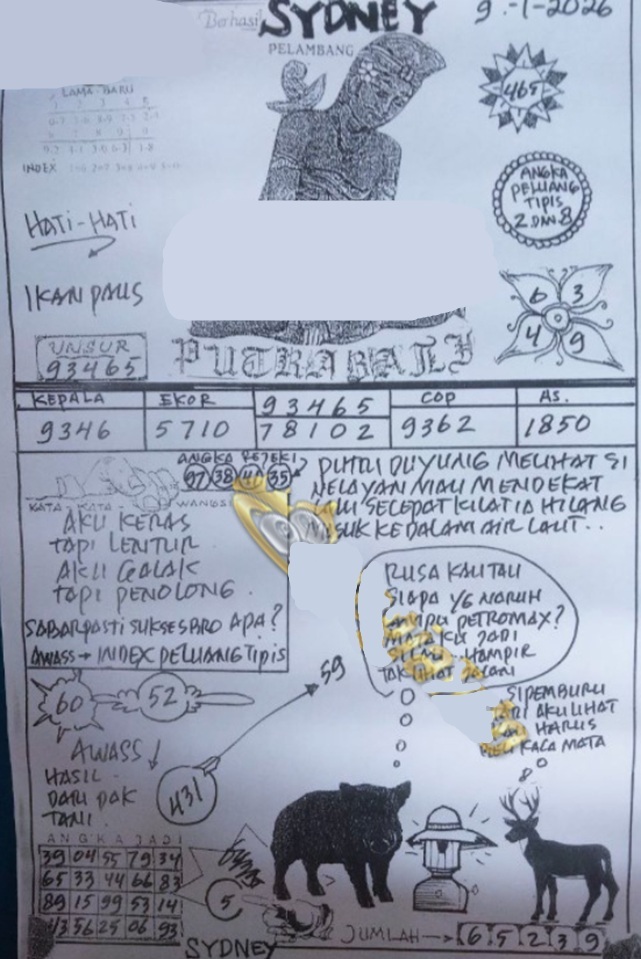 Berhasil SYDNEY 9-1-2026
PELAMBANG
LAMA - BARU
INDEX
465
ANGKA
PELUANG
TIPIS
2 DAN 8
HATI-HATI
IKAN PAUS
6 3
4 9
UNSUR
93465
PUTRA BALI
KEPALA EKOR 93465 COP AS.
9346 5710 78102 9362 1850
ANGKA REJEKI
97 38 41 35
PUTRI DUYUNG MELIHAT SI
NELAYAN MAU MENDEKAT
LALU SECEPAT KILAT IA HILANG
MASUK KEDALAM AIR LAUT..
KATA - KATA - WANGSI
AKU KERAS
TAPI LENTUR
AKU GALAK
TAPI PENOLONG.
SABAR PASTI SUKSES BRO APA?
AWASS → INDEX PELUANG TIPIS
RUSA KAU TAU
SIAPA YG NARUH
LAMPU PETROMAX?
MATA KU JADI
SILAU. HAMPIR
TAK LIHAT JALAN
60 52
59
SIPEMBURU
TADI AKU LIHAT
HARUS
BELI KACA MATA
AWASS
HASIL
DARI PAK
TANI.
431
ANGKA JADI
39 04 55 79 34
65 33 44 66 83
89 15 99 53 14
43 56 25 06 93
5
SYDNEY
JUMLAH → 6 5 2 3 9